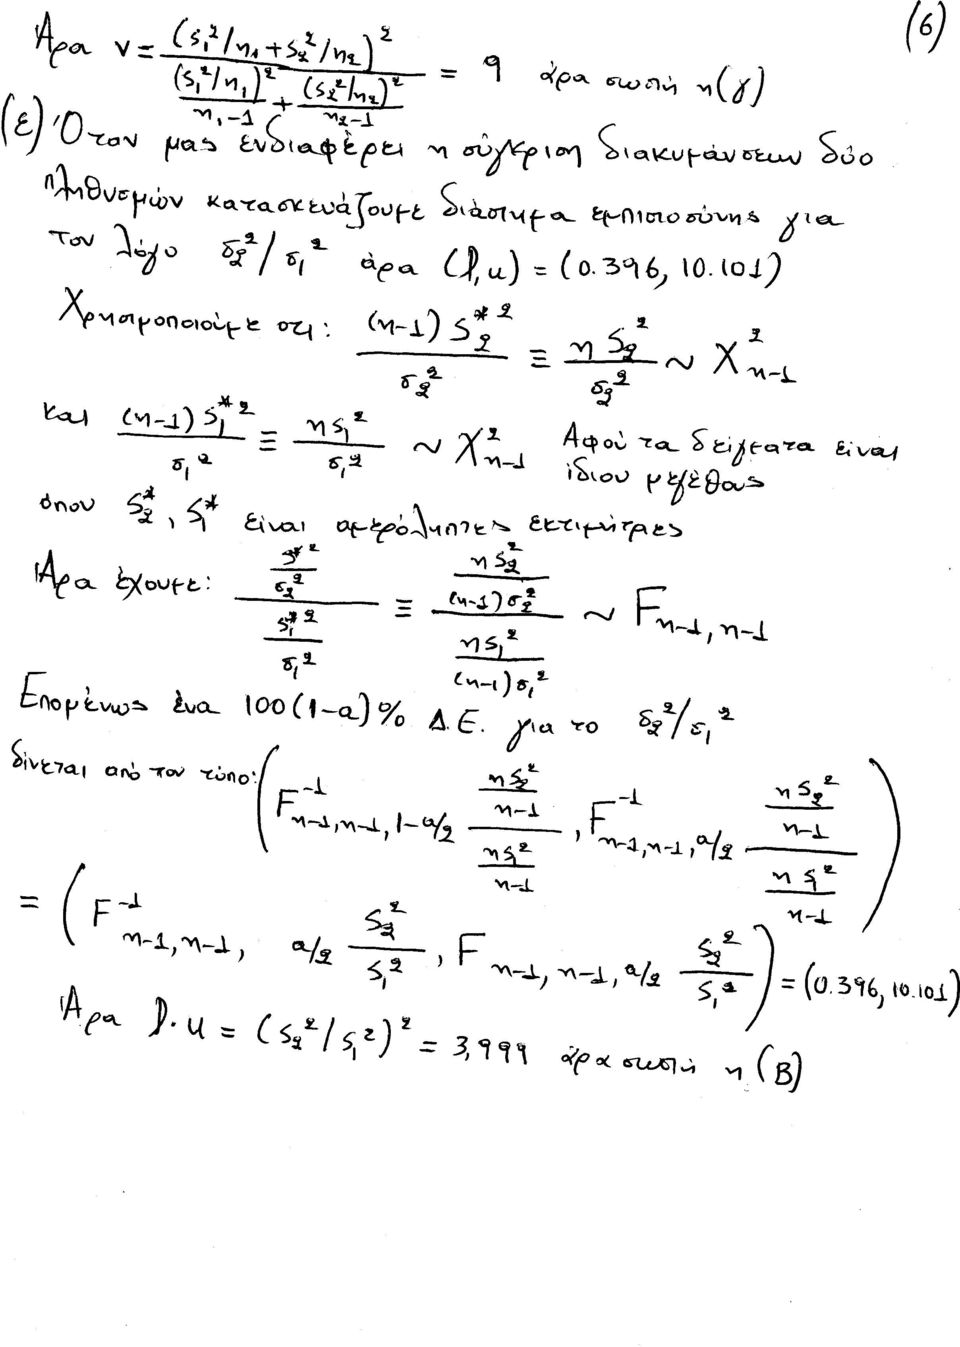 (6)
Άρα ν = (s₁²/n₁ + s₂²/n₂)² / ( (s₁²/n₁)²/(n₁-1) + (s₂²/n₂)²/(n₂-1) ) = 9 άρα σωστή η (γ)
(ε) Όταν μας ενδιαφέρει η σύγκριση διακυμάνσεων δύο
πληθυσμών κατασκευάζουμε διάστημα εμπιστοσύνης για
τον λόγο σ₂²/σ₁² άρα (l, u) = (0.396, 10.101)
Χρησιμοποιούμε οτι: (n-1)S₂*²/σ₂² ≡ nS₂²/σ₂² ~ X²ₙ₋₁
και (n-1)S₁*²/σ₁² ≡ nS₁²/σ₁² ~ X²ₙ₋₁ Αφού τα δείγματα είναι
ίδιου μεγέθους
όπου S₂*, S₁* είναι αμερόληπτες εκτιμήτριες
Άρα έχουμε: (S*²/σ₂²) / (S₁*²/σ₁²) ≡ (nS₂²/((n-1)σ₂²)) / (nS₁²/((n-1)σ₁²)) ~ Fₙ₋₁,ₙ₋₁
Επομένως ένα 100(1-α)% Δ.Ε. για το σ₂²/σ₁²
δίνεται από τον τύπο: ( F⁻¹ₙ₋₁,ₙ₋₁,₁₋α/₂ (nS₂²/(n-1)) / (nS₁²/(n-1)), F⁻¹ₙ₋₁,ₙ₋₁,α/₂ (nS₂²/(n-1)) / (nS₁²/(n-1)) )
= ( F⁻¹ₙ₋₁,ₙ₋₁, α/₂ S₂²/S₁², Fₙ₋₁,ₙ₋₁,α/₂ S₂²/S₁² ) = (0.396, 10.101)
Άρα l·u = (S₂²/S₁²)² = 3,999 άρα σωστή η (Β)